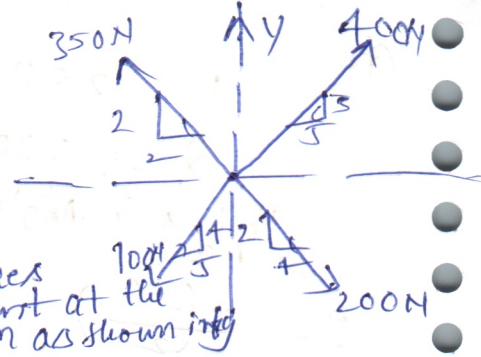 350N
Y
400N
2
2
3
5
100N
4
5
2
4
200N
at the
as shown in fig